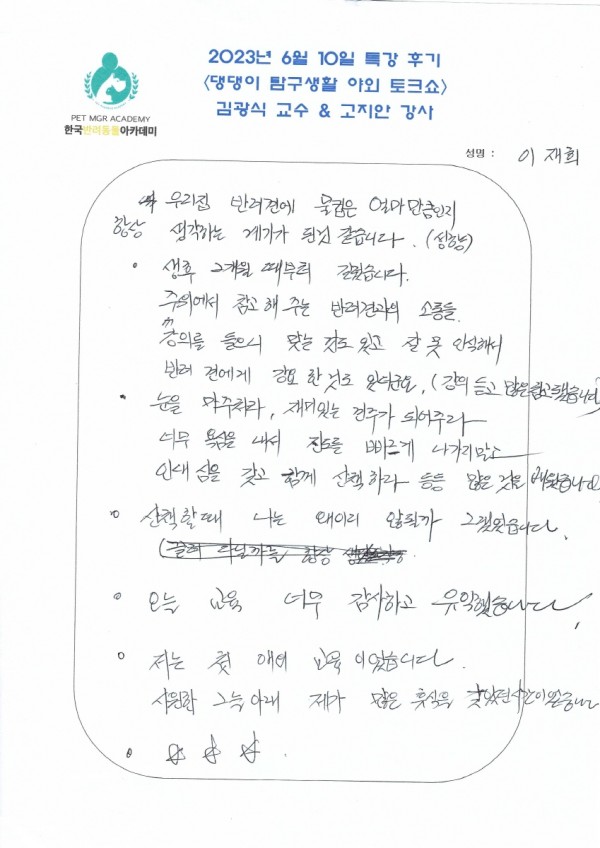 2023년 6월 10일 특강 후기
<댕댕이 탐구생활 야외 토크쇼>
김광식 교수 & 고지안 강사
PET MGR ACADEMY
한국반려동물아카데미
성명 : 이재희
우리집 반려견에 물컵은 얼마만큼인지
항상 생각하는 계기가 된것 같습니다. (성향)
생후 2개월 때부터 길렀습니다.
주위에서 참고 해 주는 반려견과의 소통들.
강의를 들으니 맞는 것도 있고 잘 못 인식해서
반려 견에게 강요 한 것도 있더군요, (강의 듣고 많은
눈을 마주쳐라, 재미있는 견주가 되어주라
너무 욕심을 내서 진도를 빠르게 나가지말고
인내 심을 갖고 함께 산책 하라 등등 많은 것을 배웠습니다.
산책 할때 나는 왜이리 않될까 그랬었습니다.
오늘 교육 너무 감사하고 유익했습니다.
저는 첫 야외 교육 이었습니다.
시원한 그늘 아래 제가 많은 휴식을 갖았던 시간이었습니다
☆ ☆ ☆.